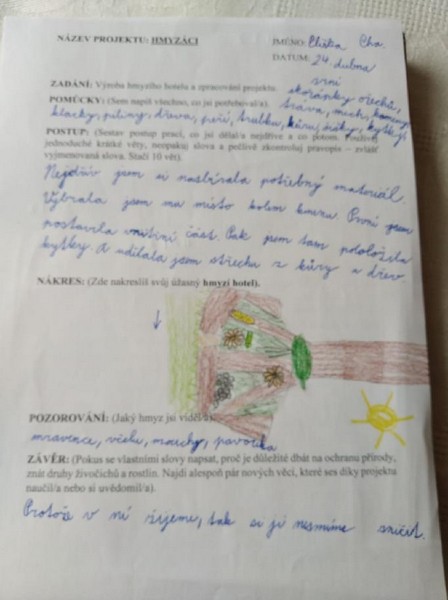 NÁZEV PROJEKTU: HMYZÁCI
JMÉNO: Eliška Cha.
DATUM: 24 dubna
ZADÁNÍ: Výroba hmyzího hotelu a zpracování projektu.
POMŮCKY: (Sem napiš všechno, co jsi potřeboval/a). skořápky ořechů,
tráva, mech, kameny,
klacky, piliny, dřeva, peří, kůru, kytky
POSTUP: (Sestav postup prací, co jsi dělal/a nejdříve a co potom. Používej
jednoduché krátké věty, neopakuj slova a pečlivě zkontroluj pravopis – zvlášť
vyjmenovaná slova. Stačí 10 vět).
Nejdřív jsem si nasbírala potřebný materiál.
Vybrala jsem mu místo kolem kmenu. První jsem
postavila vnitřní část. Pak jsem tam
kytky. A udělala jsem střechu z kůry a dřev
NÁKRES: (Zde nakreslíš svůj úžasný hmyzí hotel).
POZOROVÁNÍ: (Jaký hmyz jsi viděl/a)
mravence, včelu, mouchy, pavouka
ZÁVĚR: (Pokus se vlastními slovy napsat, proč je důležité dbát na ochranu přírody,
znát druhy živočichů a rostlin. Najdi alespoň pár nových věcí, které ses díky projektu
naučil/a nebo si uvědomil/a).
Protože v ní žijeme, tak si jí nesmíme sničit.